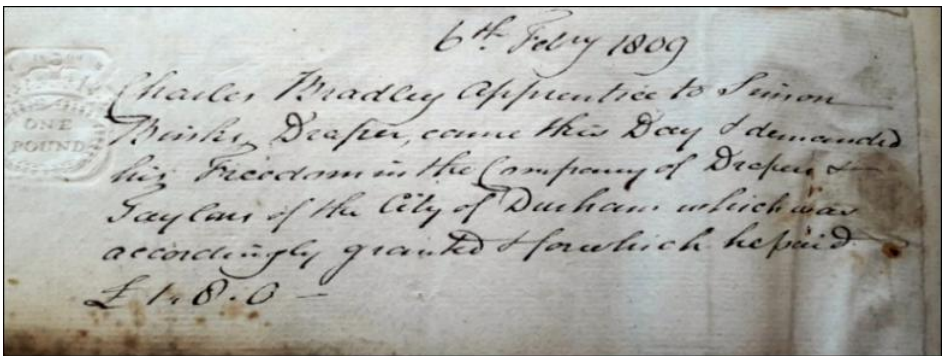 6th. Febry 1809
ONE
POUND
Charles Bradley Apprentice to Simon
Binks, Draper, came this Day & demanded
his Freedom in the Company of Drapers &
Taylors of the City of Durham which was
accordingly granted & for which he paid
£1. 8. 0 —